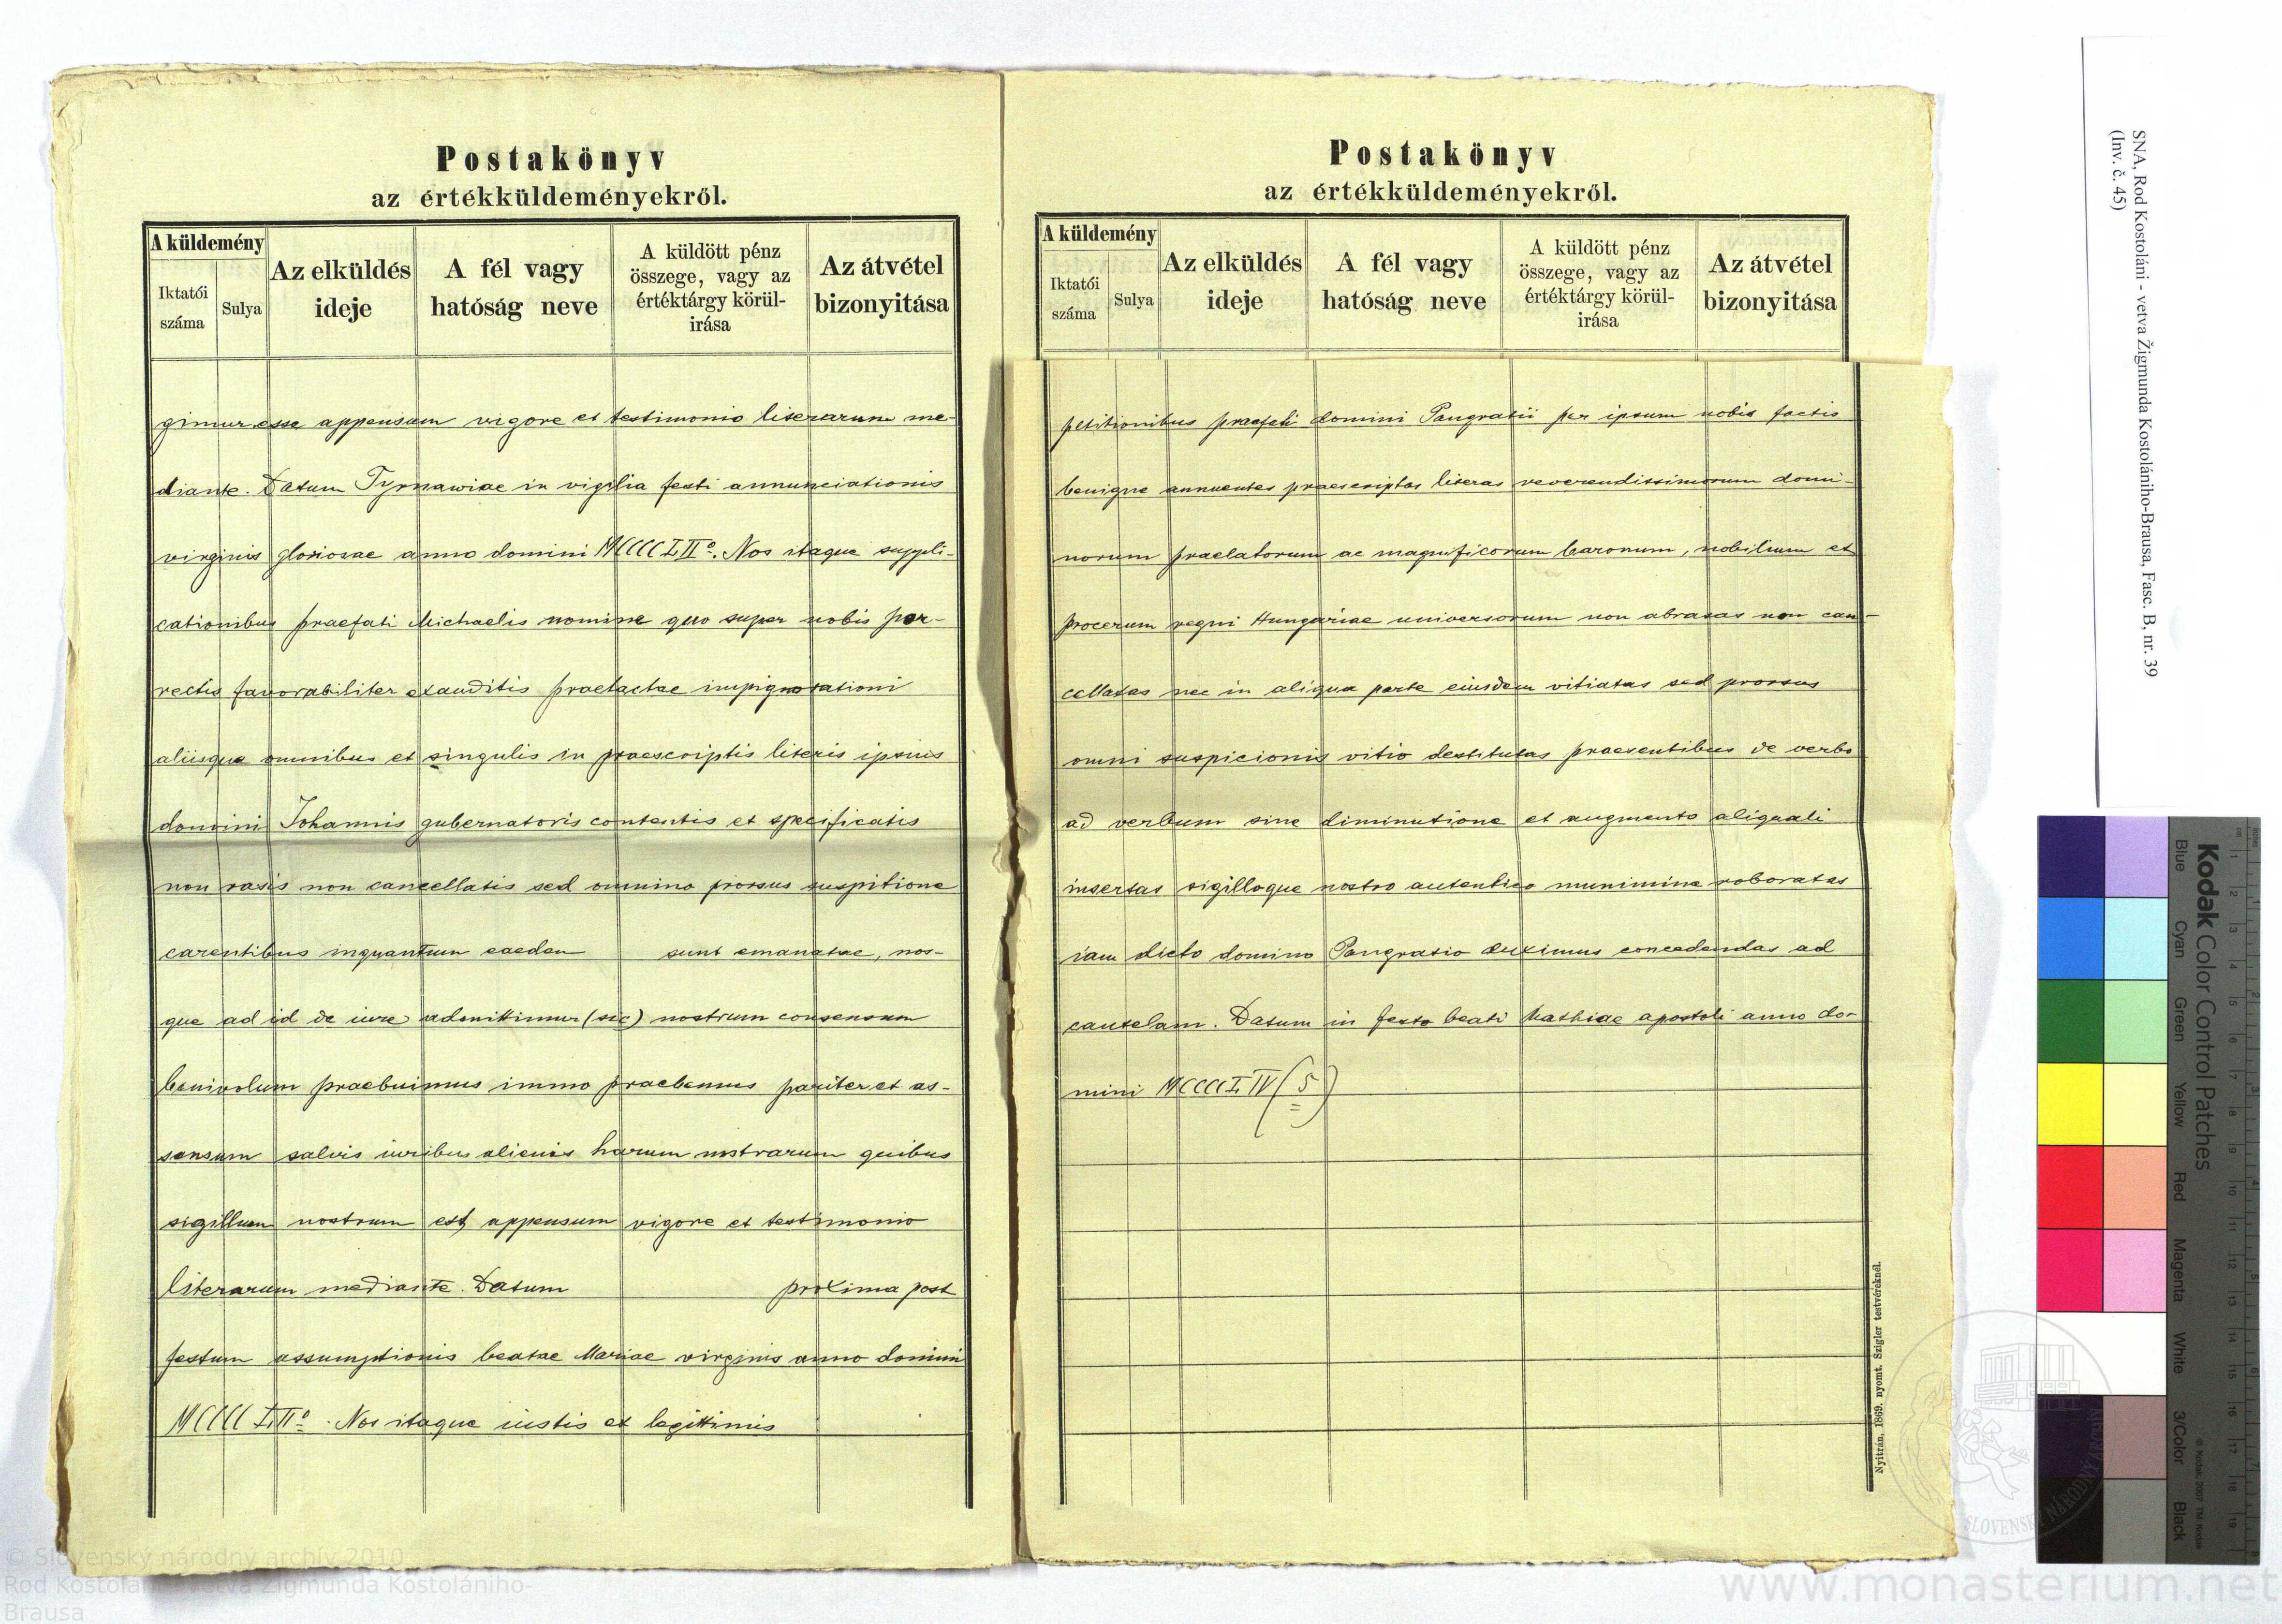 Postakönyv
az értékküldeményekről.
A küldemény
Iktatói
száma
Sulya
Az elküldés
ideje
A fél vagy
hatóság neve
A küldött pénz
összege, vagy az
értéktárgy körül-
irása
Az átvétel
bizonyitása
gimur esse appensum vigore et testimonio literarum me-
diante. Datum Tyrnawiae in vigilia festi annunciationis
virginis gloriosae anno domini MCCCCLIIo. Nos itaque suppli-
cationibus praefati Michaelis nomine quo super nobis por-
rectis favorabiliter exauditis praetactae impignorationi
aliisque omnibus et singulis in praescriptis literis ipsius
domini Johannis gubernatoris contentis et specificatis
non rasis non cancellatis sed omnino prorsus suspitione
carentibus inquantum eaedem sunt emanatae, nos-
que ad id de iure admittimur (sic) nostrum consensum
benivolum praebuimus immo praebemus pariter et as-
sensum salvis iuribus alienis harum nostrarum quibus
sigillum nostrum est appensum vigore et testimonio
literarum mediante. Datum proxima post
festum assumptionis beatae Mariae virginis anno domini
MCCCCLIIo. Nos itaque iustis et legittimis
Postakönyv
az értékküldeményekről.
A küldemény
Iktatói
száma
Sulya
Az elküldés
ideje
A fél vagy
hatóság neve
A küldött pénz
összege, vagy az
értéktárgy körül-
irása
Az átvétel
bizonyitása
petitionibus praefati domini Pangratii per ipsum nobis factis
benigne annuentes praescriptas literas reverendissimorum domi-
norum praelatorum ac magnificorum baronum, nobilium et
procerum regni Hungariae universorum non abrasas non can-
cellatas nec in aliqua parte eiusdem vitiatas sed prorsus
omni suspicionis vitio destitutas praesentibus de verbo
ad verbum sine diminutione et augmento aliquali
insertas sigilloque nostro autentico munimine roboratas
iam dicto domino Pangratio duximus concedendas ad
cautelam. Datum in festo beati Mathiae apostoli anno do-
mini MCCCCLIV (5)
Nyitrán, 1869. nyomt. Szigler testvéreknél.
SNA, Rod Kostoláni - vetva Žigmunda Kostolániho-Brausa, Fasc. B, nr. 39
(Inv. č. 45)
Kodak Color Control Patches
Blue
Cyan
Green
Yellow
Red
Magenta
White
3/Color
Black
© Kodak, 2007 TM: Kodak
© Slovenský národný archív 2010
Rod Kostoláni - vetva Žigmunda Kostolániho-
Brausa
SLOVENSKÝ NÁRODNÝ ARCHÍV
www.monasterium.net